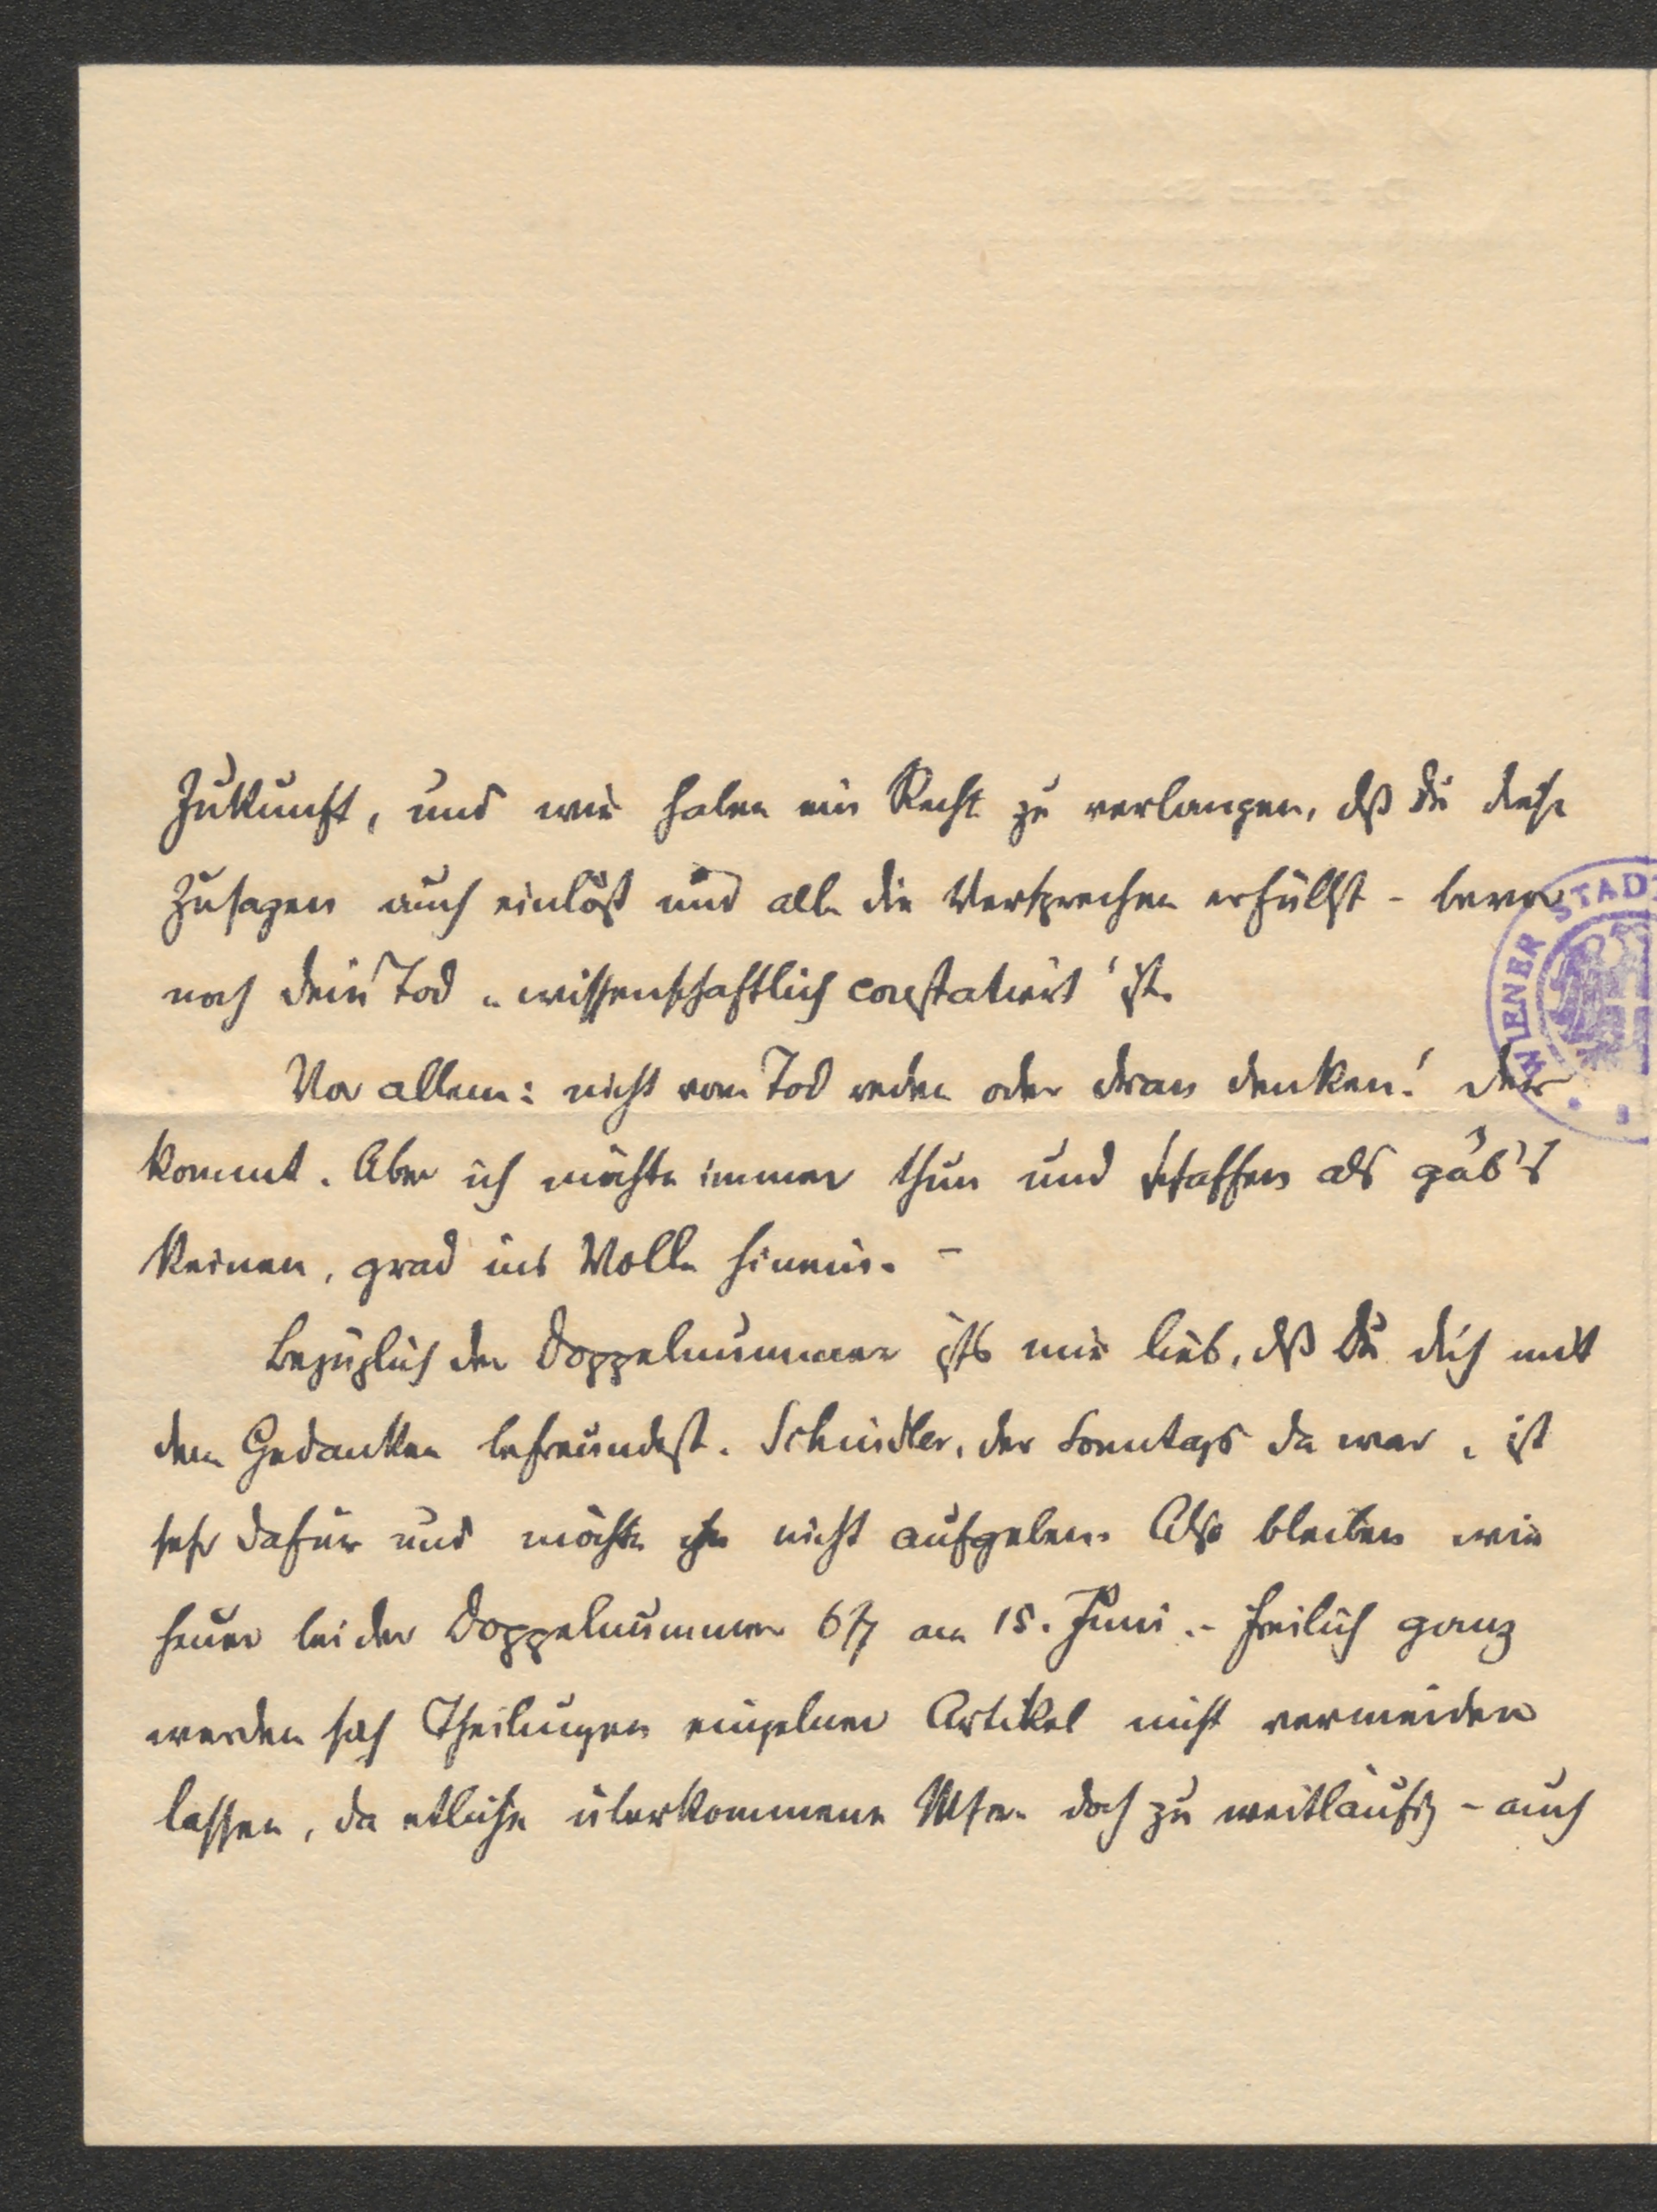 Zukunft, und wir haben ein Recht zu verlangen, dß Du diese
Zusagen auch einlöst und alle die Versprechen erfüllst - bevor
noch dein Tod „wissenschaftlich constatiert" ist.
Vor allem: nicht vom Tod reden oder dran denken! Der
kommt. Aber ich möchte immer thun und schaffen als gäb's
keinen, grad ins Volle hinein. -
Bezüglich der Doppelnummer ists mir lieb, dß Du dich mit
dem Gedanken befreundest. Schindler, der Sonntags da war, ist
sehr dafür und möchte ihn nicht aufgeben. Also bleiben wir
heuer bei der Doppelnummer 6/7 am 15. Juni. - Freilich ganz
werden sich Theilungen einzelner Artikel nicht vermeiden
lassen, da etliche überkommene Mscr. doch zu weitläufig - auch
WIENER STADT